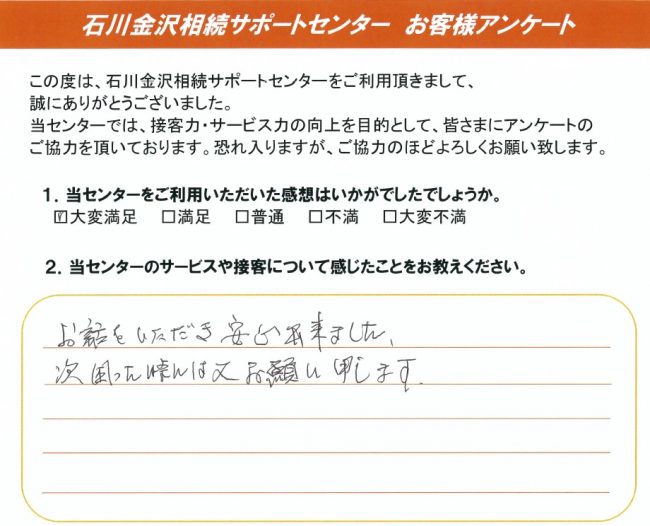 石川金沢相続サポートセンター お客様アンケート
この度は、石川金沢相続サポートセンターをご利用頂きまして、
誠にありがとうございました。
当センターでは、接客力・サービス力の向上を目的として、皆さまにアンケートの
ご協力を頂いております。恐れ入りますが、ご協力のほどよろしくお願い致します。
1. 当センターをご利用いただいた感想はいかがでしたでしょうか。
☑大変満足 □満足 □普通 □不満 □大変不満
2. 当センターのサービスや接客について感じたことをお教えください。
お話をいただき安心出来ました、
次困った時には又お願い申します.